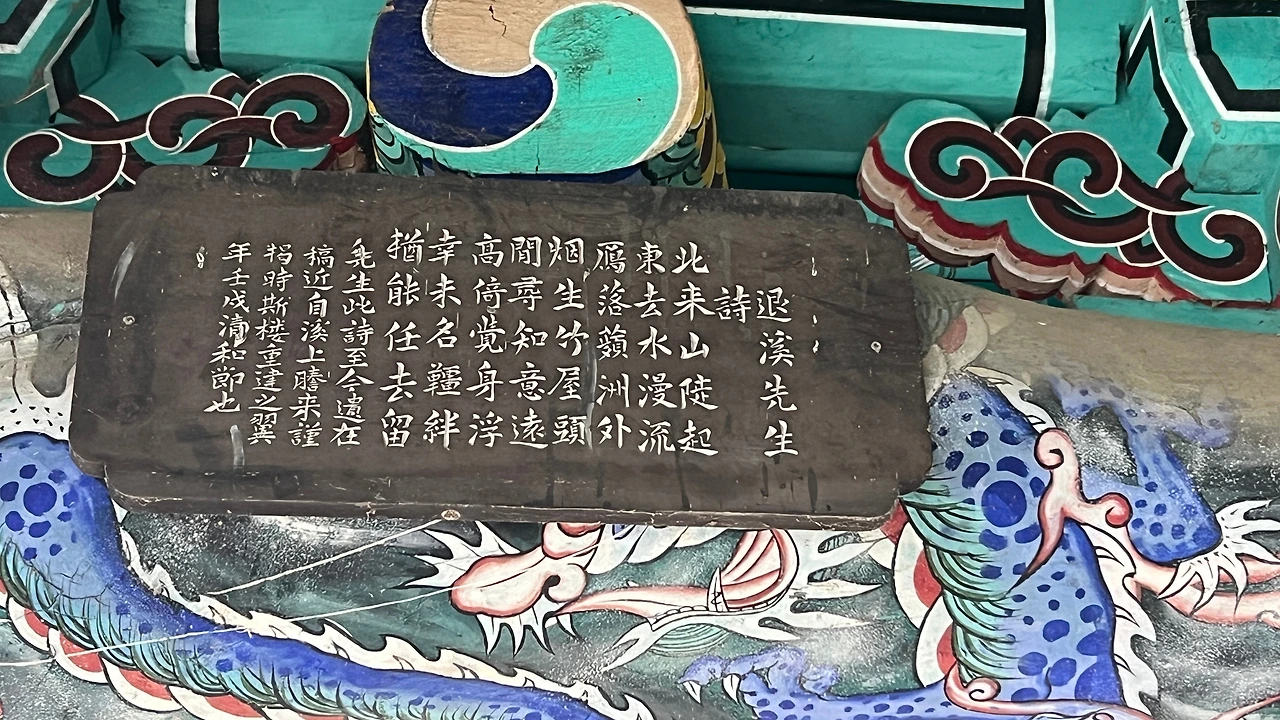 退溪先生
詩
北来山陡起
東去水漫流
鴈落蘋洲外
烟生竹屋頭
閒尋知意遠
高倚覺身浮
幸未名韁絆
猶能任去留
先生此詩至今遺在
稿近自溪上謄来謹
揭時斯楼重建之翼
年壬戌清和節也